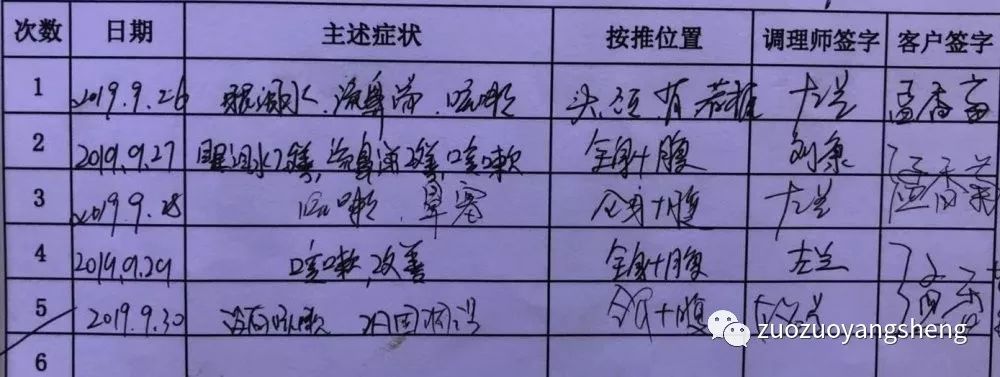 次数 日期 主述症状 按推位置 调理师签字 客户签字
1 2019.9.26 眼泪水、流鼻涕、咳嗽 头、颈、肩 左兰 孟香
2 2019.9.27 眼泪水改善,流鼻涕改善,咳嗽 全身+腹 刘康 孟香菊
3 2019.9.28 咳嗽、鼻塞 全身+腹 左兰
4 2019.9.29 咳嗽改善 全身+腹 左兰
5 2019.9.30 咳嗽 巩固调理 全身+腹
6
zuozuoyangsheng